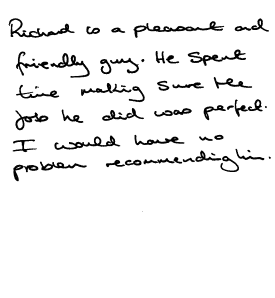 Richard is a pleasant and
friendly guy. He spent
time making sure the
job he did was perfect.
I would have no
problem recommending him.